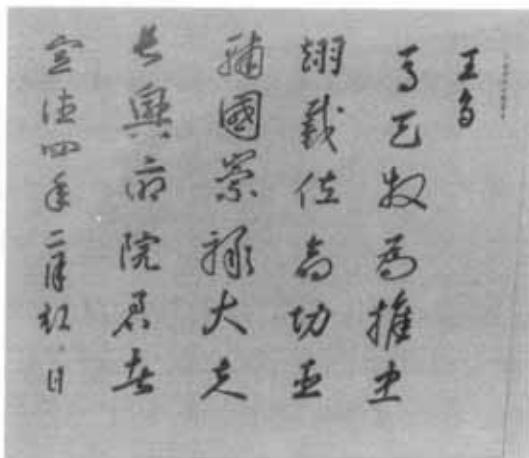 王旨
馬天牧爲推忠
翊戴佐命功臣
輔國崇祿大夫
長興府院君者
宣德四年二月初 日